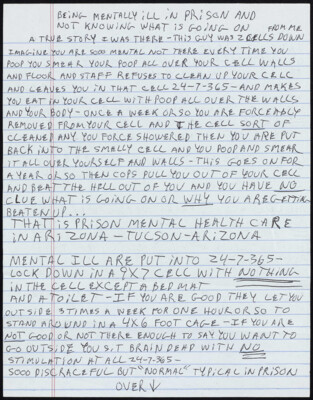 BEING MENTALLY ILL IN PRISON AND
NOT KNOWING WHAT IS GOING ON FROM ME
A TRUE STORY I WAS THERE - THIS GUY WAS 2 CELLS DOWN
IMAGINE YOU ARE SOOO MENTAL NOT THERE EVERY TIME YOU
POOP YOU SMEAR YOUR POOP ALL OVER YOUR CELL WALLS
AND FLOOR AND STAFF REFUSES TO CLEAN UP YOUR CELL
AND LEAVES YOU IN THAT CELL 24-7-365 - AND MAKES
YOU EAT IN YOUR CELL WITH POOP ALL OVER THE WALLS
AND YOUR BODY - ONCE A WEEK OR SO YOU ARE FORCEABLY
REMOVED FROM YOUR CELL AND THE CELL SORT OF
CLEANED ANY YOU FORCE SHOWERED THEN YOU ARE PUT
BACK INTO THE SMALLY CELL AND YOU POOP AND SMEAR
IT ALL OVER YOURSELF AND WALLS - THIS GOES ON FOR
A YEAR OR SO THEN COPS PULL YOU OUT OF YOUR CELL
AND BEAT THE HELL OUT OF YOU AND YOU HAVE NO
CLUE WHAT IS GOING ON OR WHY YOU ARE GETTING
BEATEN UP...
THAT IS PRISON MENTAL HEALTH CARE
IN ARIZONA - TUCSON - ARIZONA
MENTAL ILL ARE PUT INTO 24-7-365 -
LOCK DOWN IN A 9X7 CELL WITH NOTHING
IN THE CELL EXCEPT A BED MAT
AND A TOILET - IF YOU ARE GOOD THEY LET YOU
OUTSIDE 3 TIMES A WEEK FOR ONE HOUR OR SO TO
STAND AROUND IN A 4X6 FOOT CAGE - IF YOU ARE
NOT GOOD OR NOT THERE ENOUGH TO SAY YOU WANT TO
GO OUTSIDE YOU SIT BRAIN DEAD WITH NO
STIMULATION AT ALL 24-7-365 -
SOOO DISGRACEFUL BUT "NORMAL" TYPICAL IN PRISON
OVER ↓